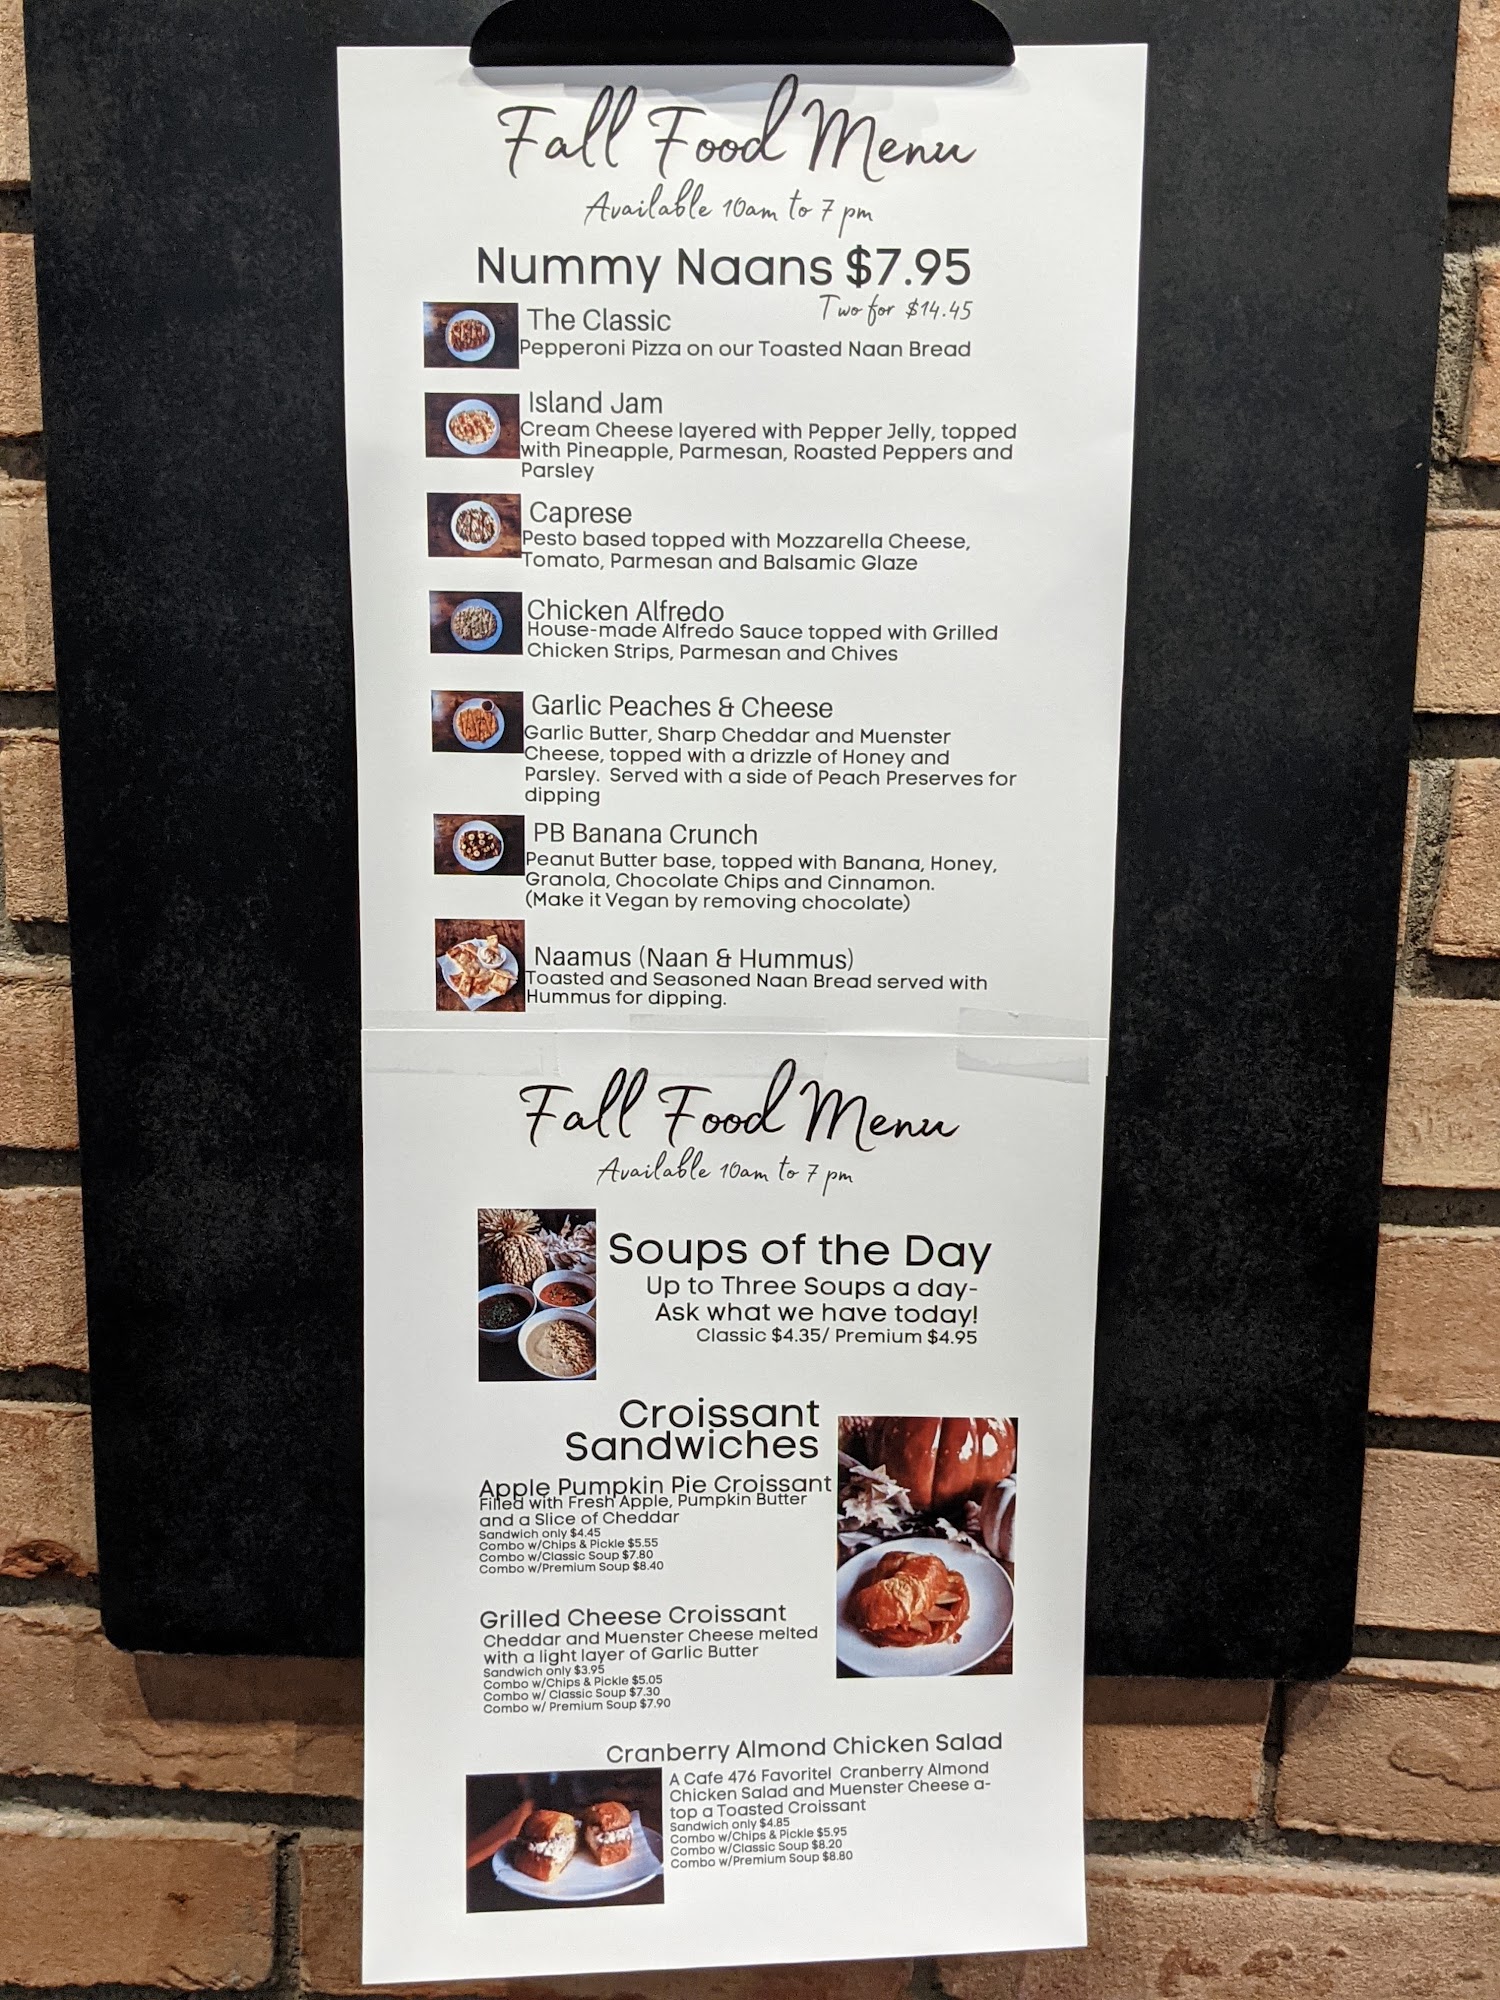 Fall Food Menu
Available 10am to 7 pm
Nummy Naans $7.95
Two for $14.45
The Classic
Pepperoni Pizza on our Toasted Naan Bread
Island Jam
Cream Cheese layered with Pepper Jelly, topped
with Pineapple, Parmesan, Roasted Peppers and
Parsley
Caprese
Pesto based topped with Mozzarella Cheese,
Tomato, Parmesan and Balsamic Glaze
Chicken Alfredo
House-made Alfredo Sauce topped with Grilled
Chicken Strips, Parmesan and Chives
Garlic Peaches & Cheese
Garlic Butter, Sharp Cheddar and Muenster
Cheese, topped with a drizzle of Honey and
Parsley. Served with a side of Peach Preserves for
dipping
PB Banana Crunch
Peanut Butter base, topped with Banana, Honey,
Granola, Chocolate Chips and Cinnamon.
(Make it Vegan by removing chocolate)
Naamus (Naan & Hummus)
Toasted and Seasoned Naan Bread served with
Hummus for dipping.
Fall Food Menu
Available 10am to 7 pm
Soups of the Day
Up to Three Soups a day-
Ask what we have today!
Classic $4.35/ Premium $4.95
Croissant
Sandwiches
Apple Pumpkin Pie Croissant
Filled with Fresh Apple, Pumpkin Butter
and a Slice of Cheddar
Sandwich only $4.45
Combo w/Chips & Pickle $5.55
Combo w/Classic Soup $7.80
Combo w/Premium Soup $8.40
Grilled Cheese Croissant
Cheddar and Muenster Cheese melted
with a light layer of Garlic Butter
Sandwich only $3.95
Combo w/Chips & Pickle $5.05
Combo w/ Classic Soup $7.30
Combo w/ Premium Soup $7.90
Cranberry Almond Chicken Salad
A Cafe 476 Favorite! Cranberry Almond
Chicken Salad and Muenster Cheese a-
top a Toasted Croissant
Sandwich only $4.85
Combo w/Chips & Pickle $5.95
Combo w/Classic Soup $8.20
Combo w/Premium Soup $8.80